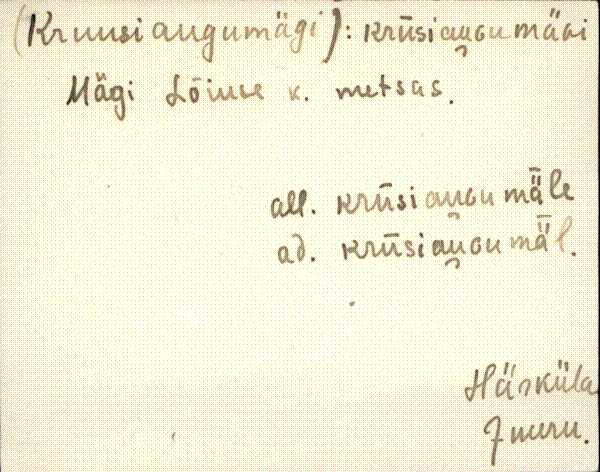 (Kruusiaugumägi): krūsiau̯GumäGi
Mägi Lõiuse k. metsas.
all. krūsiau̯Gumǟle
ad. krūsiau̯Gumǟl.
Härküla
Juuru.